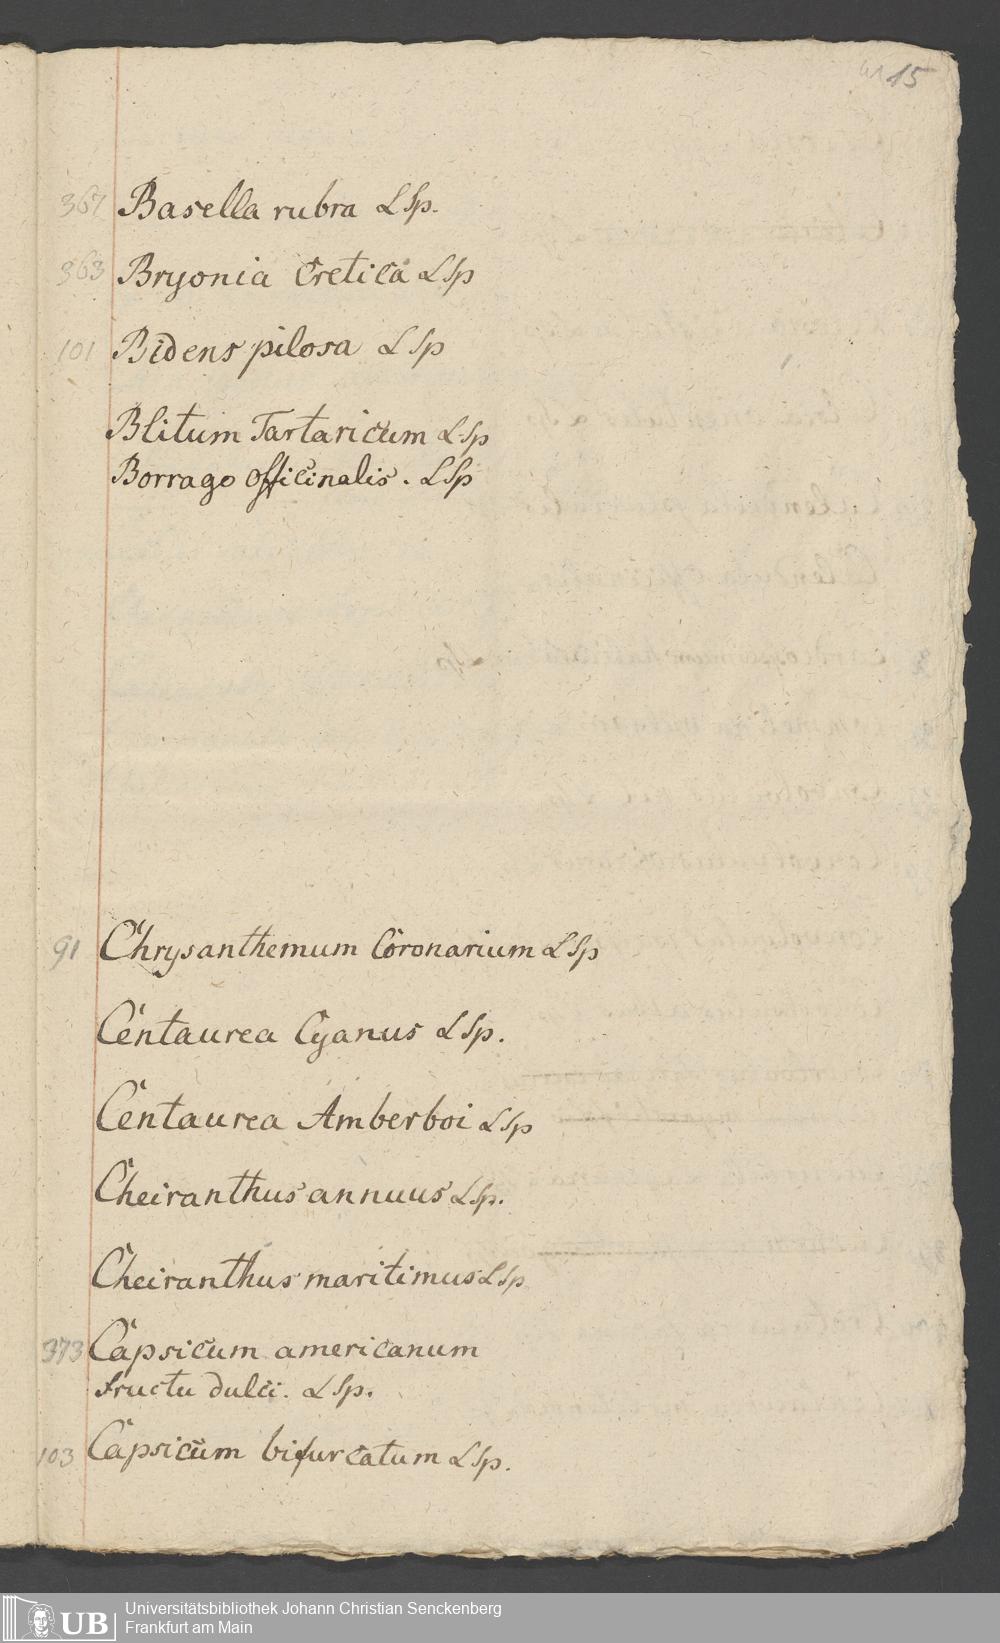 15
367 Basella rubra LSp.
363 Bryonia Cretica LSp
101 Bidens pilosa LSp
Blitum Tartaricum LSp
Borrago officinalis. LSp
91 Chrysanthemum Coronarium LSp
Centaurea Cyanus LSp.
Centaurea Amberboi LSp
Cheiranthus annuus LSp.
Cheiranthus maritimus LSp
373 Capsicum americanum
fructu dulci. LSp.
103 Capsicum bifurcatum LSp.
UB Universitätsbibliothek Johann Christian Senckenberg
Frankfurt am Main